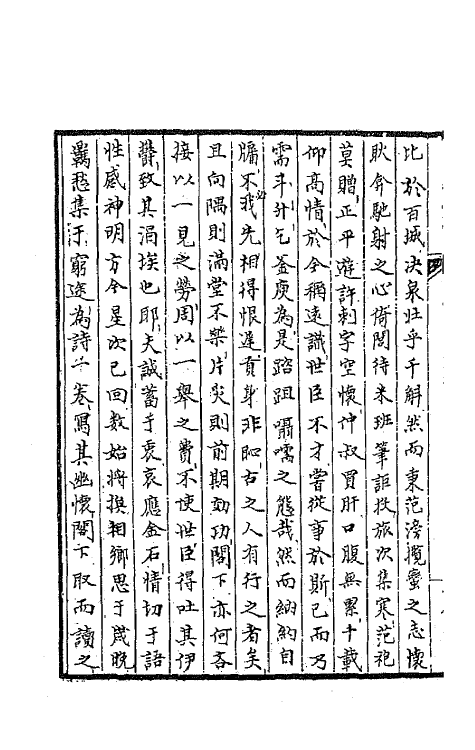 比於百城決泉壯乎千斛然而東范滂攬轡之志懷
耿弇馳射之心倚閭待米班筆詎投旅次集寒范袍
莫贈正平遊許刺字空懷仲叔買肝口腹無累千載
仰高情於今稱遠識世臣不才嘗從事於斯已而乃
需斗升乞釜庾為是踏跙囁嚅之態哉然而納約自
牖不必我先相得恨遲貢身非恥古之人有行之者矣
且向隅則滿堂不樂片災則前期勃功閣下亦何吝
接以一見之勞周以一舉之費不使世臣得吐其伊
鬱致其涓埃也耶夫誠蓄于衷哀應金石情切于語
性感神明方今星次已回數始將撰相鄉思于歲晩
羈愁集于窮途為詩二卷寫其幽懷閣下取而讀之